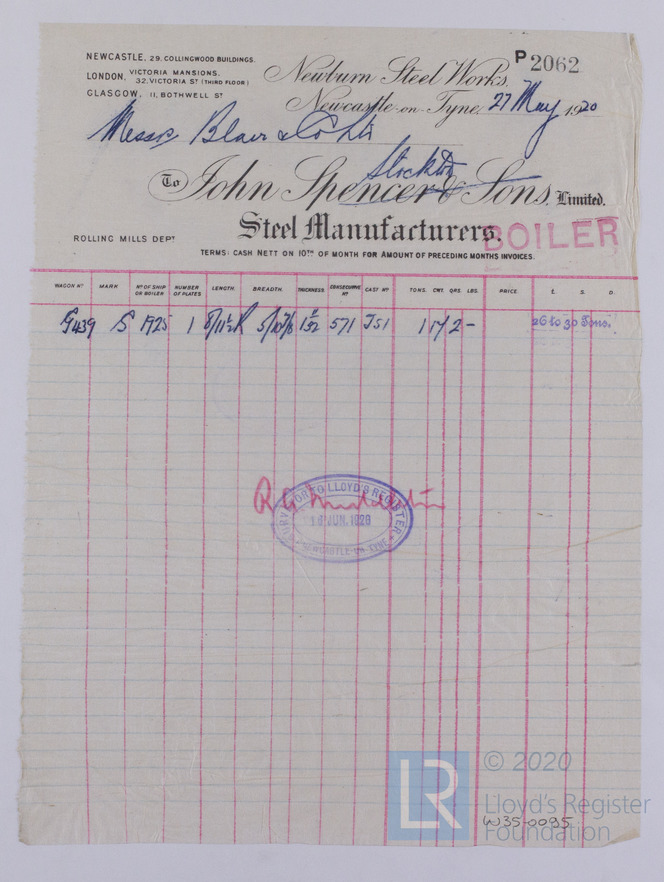 NEWCASTLE, 29. COLLINGWOOD BUILDINGS.
LONDON, VICTORIA MANSIONS,
32. VICTORIA ST (THIRD FLOOR)
GLASGOW, 11, BOTHWELL ST
P2062
Newburn Steel Works,
Newcastle-on-Tyne, 27 May 1920
Messrs Blair & Co Ltd
Stockton
To John Spencer & Sons, Limited.
Steel Manufacturers.
BOILER
ROLLING MILLS DEPT
TERMS: CASH NETT ON 10TH OF MONTH FOR AMOUNT OF PRECEDING MONTHS INVOICES.
WAGON No MARK No OF SHIP OR BOILER NUMBER OF PLATES LENGTH. BREADTH. THICKNESS. CONSECUTIVE No CAST No TONS. CWT. QRS. LBS. PRICE. £. S. D.
G439 S 1925 1 8/11½ R 5/10⅞ 571 J51 1 17 2 - 26 to 30 Tons.
SURVEYOR TO LLOYD'S REGISTER
16 JUN. 1920
NEWCASTLE-ON-TYNE
LR
© 2020
Lloyd's Register
Foundation
W35-0095